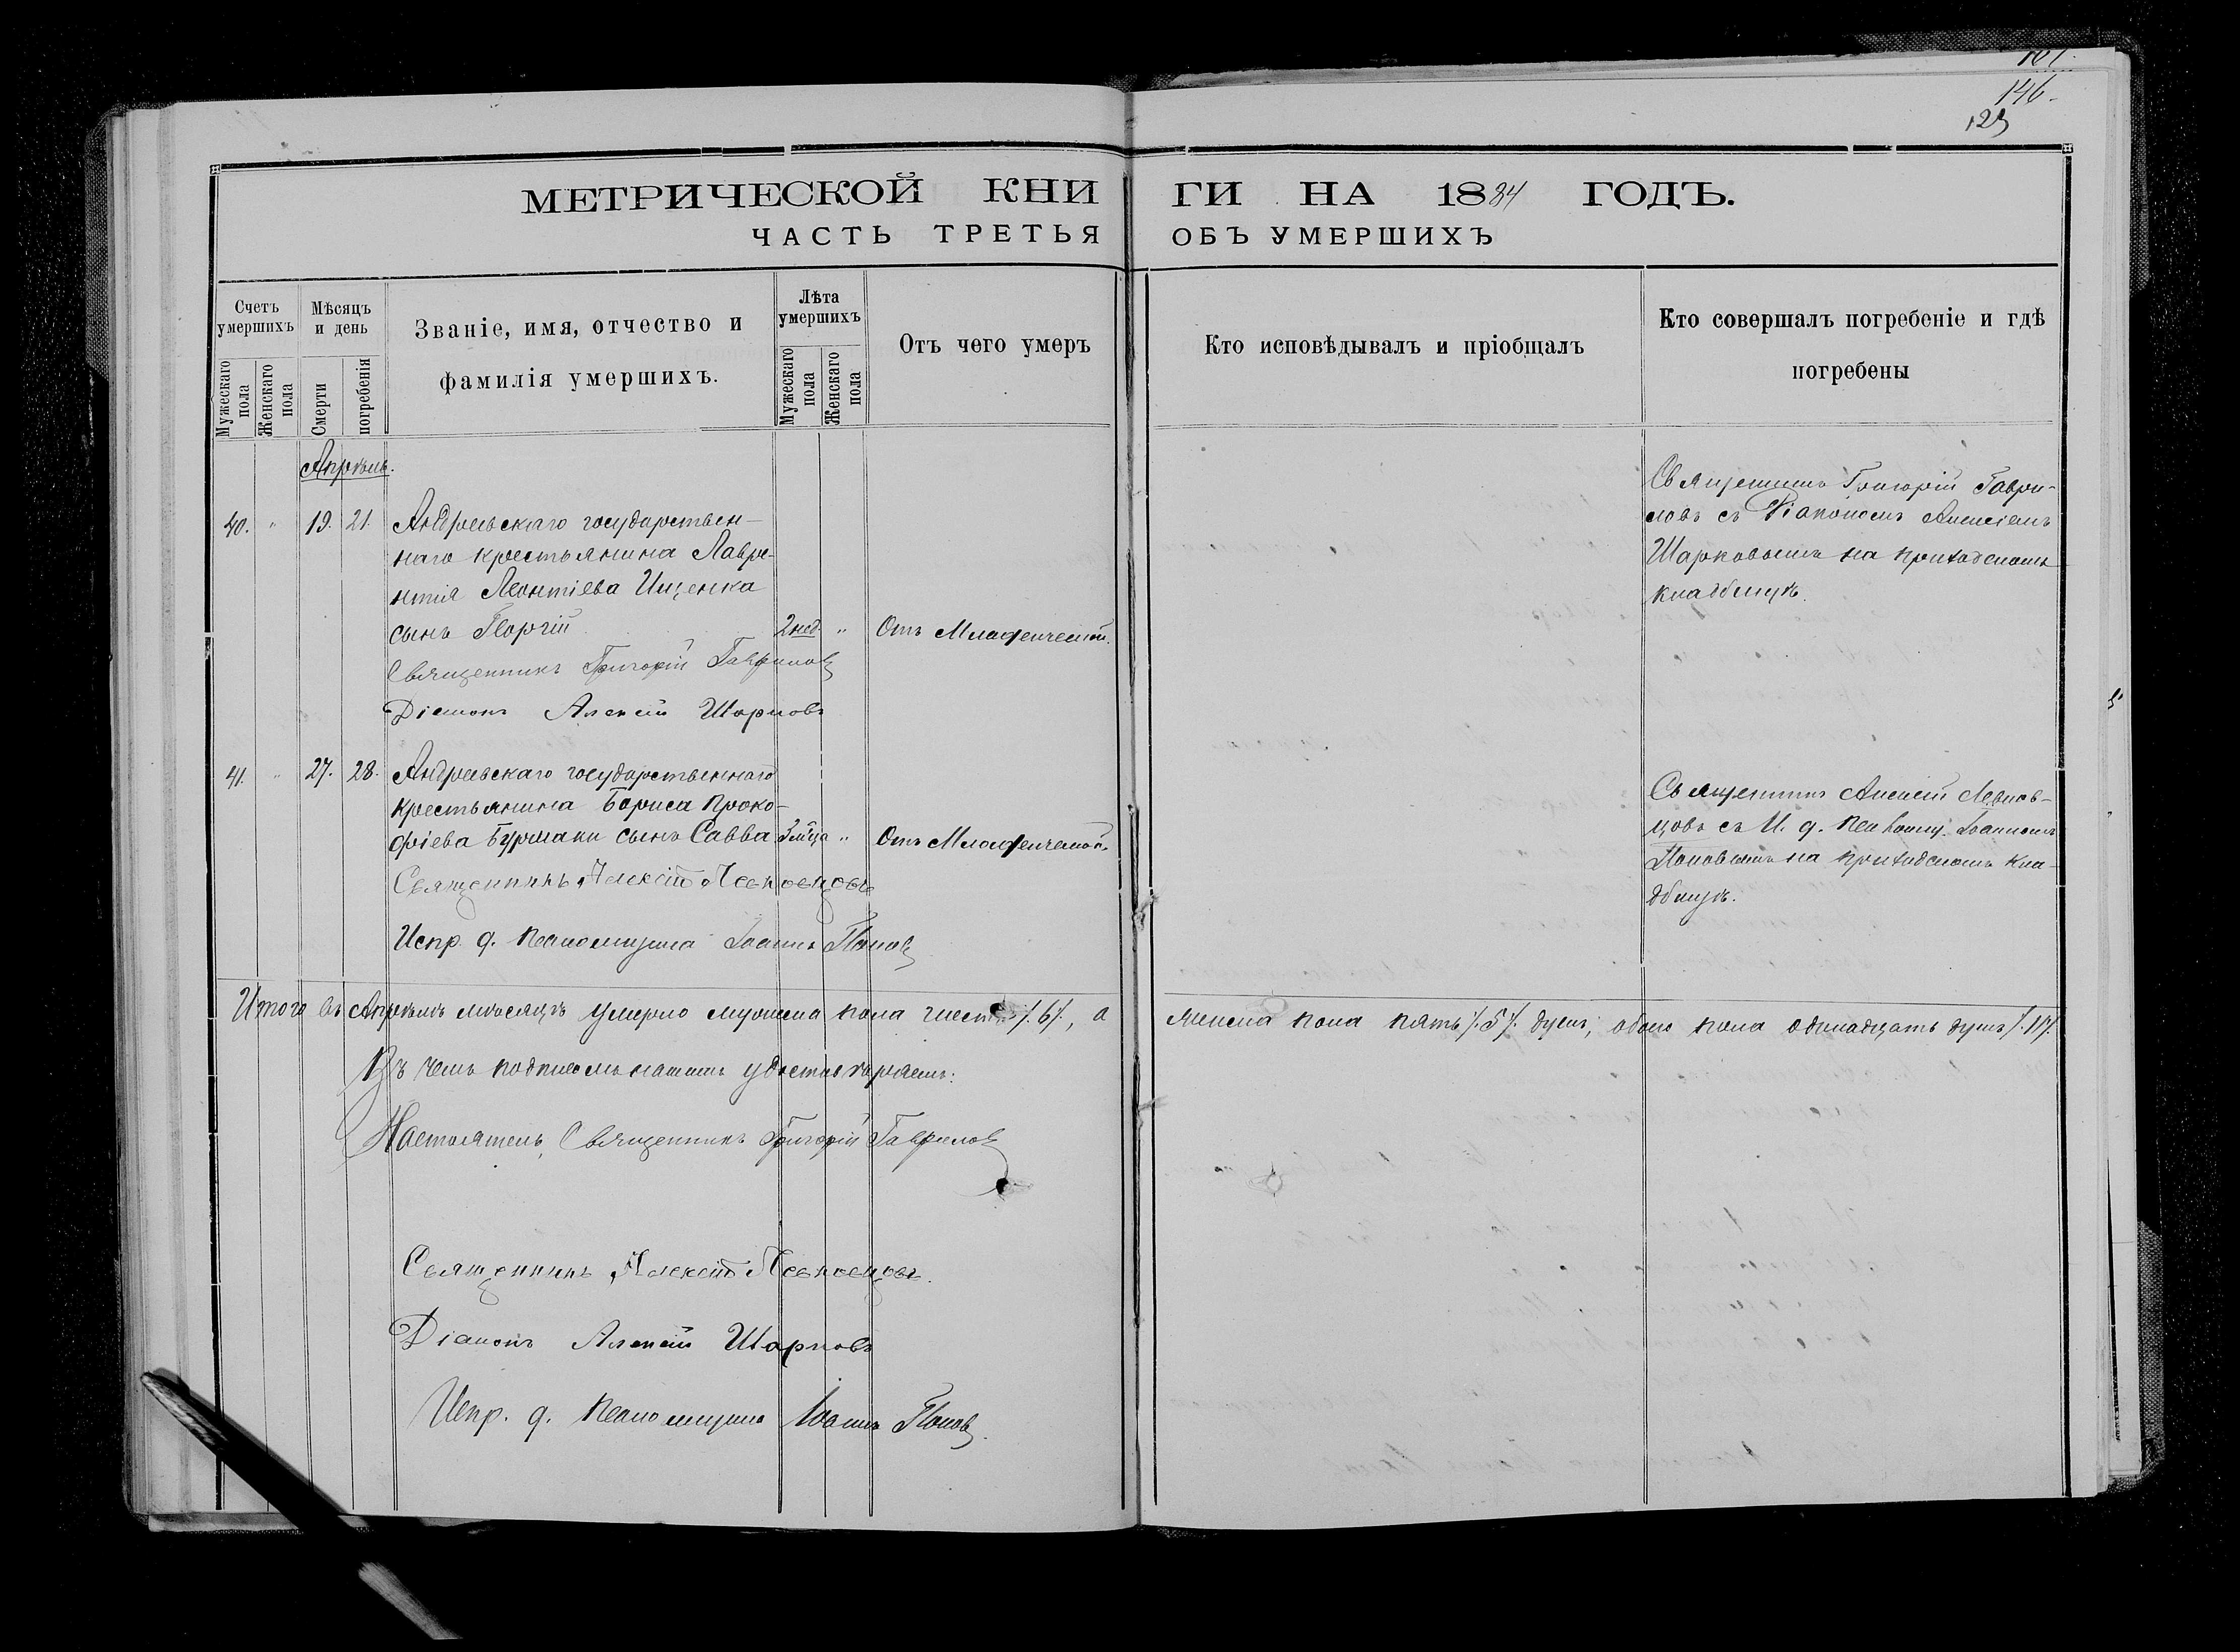 146.
123
МЕТРИЧЕСКОЙ КНИГИ НА 1884 ГОДЪ.
ЧАСТЬ ТРЕТЬЯ ОБЪ УМЕРШИХЪ
Счетъ умершихъ
Мужескаго пола
Женскаго пола
Мѣсяцъ и день
Смерти
погребенія
Званіе, имя, отчество и
фамилія умершихъ.
Лѣта умершихъ
Мужескаго пола
Женскаго пола
Отъ чего умеръ
Кто исповѣдывалъ и пріобщалъ
Кто совершалъ погребеніе и гдѣ
погребены
Апрѣль.
40. " 19. 21. Андреевскаго государствен-
наго крестьянина Лавре-
нтія Леонтіева Ищенка
сынъ Георгій 2 нед. " Отъ Младенческой.
Священникъ Григорій Гавриловъ
Діаконъ Алексій Шарковъ
Священникъ Григорій Гаври-
ловъ съ Діакономъ Алексіемъ
Шарковымъ на приходскомъ
кладбищѣ.
41. " 27. 28. Андреевскаго государственнаго
крестьянина Бориса Проко-
фіева Бурлаки сынъ Савва 3 м-ца " Отъ Младенческой.
Священникъ Алексій Левковцовъ
Испр. д. псаломщика Іоаннъ Поповъ
Священникъ Алексій Левков-
цовъ съ И. д. псаломщ. Іоанномъ
Поповымъ на приходскомъ кла-
дбищѣ.
Итого въ Апрѣлѣ мѣсяцѣ умерло мужеска пола шесть /.6/., а женска пола пять /.5/. душъ, обоего пола одинадцать душъ /.11/.
Въ чемъ подписомъ нашимъ удостовѣряемъ:
Настоятель, Священникъ Григорій Гавриловъ
Священникъ Алексій Левковцовъ.
Діаконъ Алексій Шарковъ
Испр. д. псаломщика Іоаннъ Поповъ.